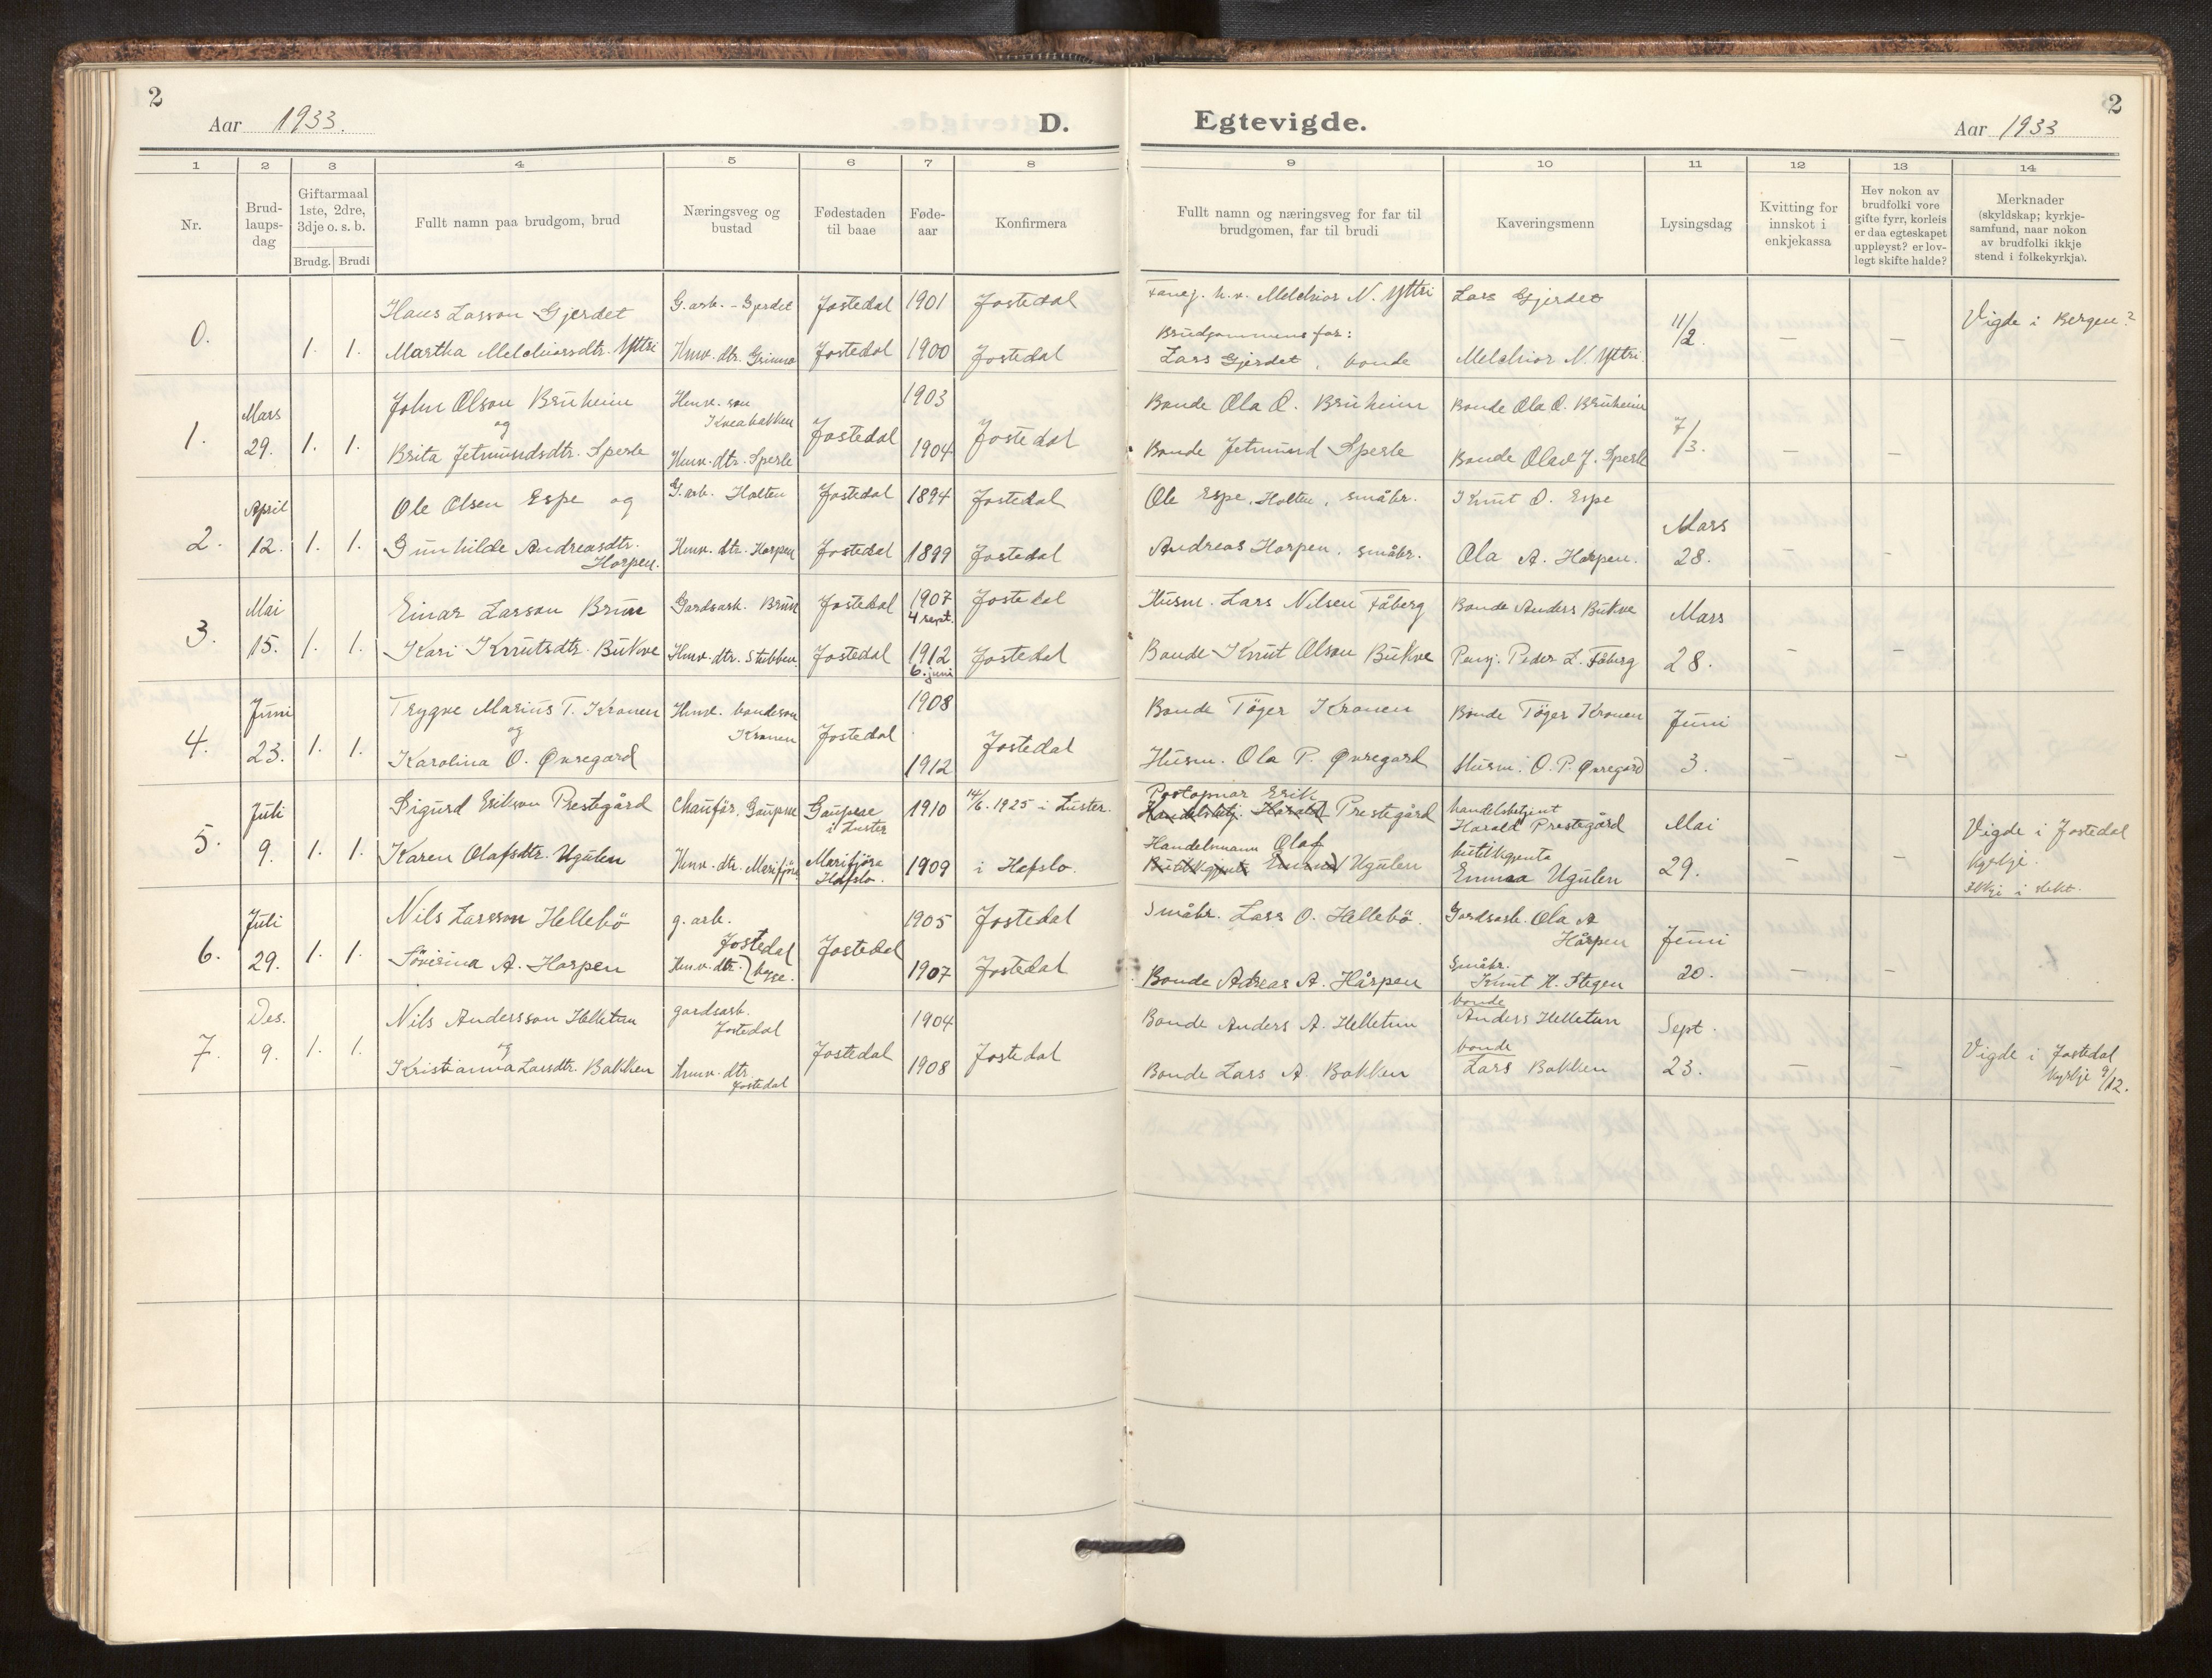 2
Aar 1933.
D.
Egtevigde.
2
Aar 1933
1 2 3 4 5 6 7 8 9 10 11 12 13 14
Nr.
Brud-
laups-
dag
Giftarmaal
1ste, 2dre,
3dje o. s. b.
Brudg. Brudi
Fullt namn paa brudgom, brud
Næringsveg og
bustad
Fødestaden
til baae
Føde-
aar
Konfirmera
Fullt namn og næringsveg for far til
brudgomen, far til brudi
Kaveringsmenn
Lysingsdag
Kvitting for
innskot i
enkjekassa
Hev nokon av
brudfolki vore
gifte fyrr, korleis
er daa egteskapet
uppløyst? er lov-
legt skifte halde?
Merknader
(skyldskap; kyrkje-
samfund, naar nokon
av brudfolki ikkje
stend i folkekyrkja).
0.
1. 1.
Hans Larson Gjerdet
Martha Melchiorsdtr. Yttri
G. arb. - Gjerdet
Husv. dtr. Grimmo
Jostedal
Jostedal
1901
1900
Jostedal
Jostedal
h.v. Melchior N. Yttri
Brudgommens far:
Lars Gjerdet, bonde
Lars Gjerdet
Melchior N. Yttri.
11/2
— —
Vigde i Bergen?
1.
Mars
29.
1. 1.
John Olson Bruheim
og
Brita Jetmundsdtr. Sperle
Husv. son
Kreabakken
Husv. dtr. Sperle
Jostedal
1903
1904
Jostedal
Bonde Ola O. Bruheim
Bonde Jetmund Sperle
Bonde Ola O. Bruheim
Bonde Olav J. Sperle
7/3.
— —
2.
April
12.
1. 1.
Ole Olsen Espe og
Gunhilde Andreasdtr.
Horpen.
G. arb. Holten
Husv. dtr. Horpen
Jostedal
Jostedal
1894
1899
Jostedal
Jostedal
Ole Espe, Holten, småbr.
Andreas Horpen, småbr.
Knut O. Espe
Ola A. Horpen.
Mars
28.
— —
3.
Mai
15.
1. 1.
Einar Larson Brun
Kari Knutsdtr. Bukve
Gardsarb. Brun
Husv. dtr. Stubben
Jostedal
Jostedal
1907
4 sept.
1912
6. juni
Jostedal
Jostedal
Husm. Lars Nilsen Fåberg
Bonde Knut Olson Bukve
Bonde Anders Bukve
Pensj. Peder L. Fåberg
Mars
28.
— —
4.
Juni
23.
1. 1.
Trygve Marius T. Kronen
og
Karolina O. Øvregard
Husv. bondeson
Kronen
Jostedal
1908
1912
Jostedal
Bonde Tøger Kronen
Husm. Ola P. Øvregard
Bonde Tøger Kronen
Husm. O. P. Øvregard
Juni
3.
— —
5.
Juli
9.
1. 1.
Sigurd Erikson Prestegård
Karen Olafsdtr. Ugulen
Chauför, Gaupne
Husv. dtr. Marifjöra
Gaupne
i Luster
Marifjöra
Hafslo.
1910
1909
14/6. 1925 i Luster.
i Hafslo.
Postopnar Erik
Handelsbetj. Harald Prestegård
Handelsmann Olaf
Butikkgjenta Emma Ugulen
handelsbetjent
Harald Prestegård
butikkgjenta
Emma Ugulen
Mai
29.
— —
Vigde i Jostedal
kyrkje.
Ikkje i slekt.
6.
Juli
29.
1. 1.
Nils Larsson Hellebö
Söverina A. Horpen
g. arb.
Jostedal
Husv. dtr. begge.
Jostedal
1905
1907
Jostedal
Jostedal
Småbr. Lars O. Hellebö.
Bonde Adreas A. Hårpen
Gardsarb. Ola A
Hårpen
Småbr.
Knut H. Stegen
Juni
20.
— —
7.
Des.
9.
1. 1.
Nils Andersson Helletun
og
Kristianna Larsdtr. Bakken
gardsarb.
Jostedal
husv. dtr.
Jostedal
Jostedal
1904
1908
Jostedal
Bonde Anders A. Helletun
Bonde Lars A. Bakken
bonde
Anders Helletun
bonde
Lars Bakken
Sept.
23.
— —
Vigde i Jostedal
kyrkje 9/12.